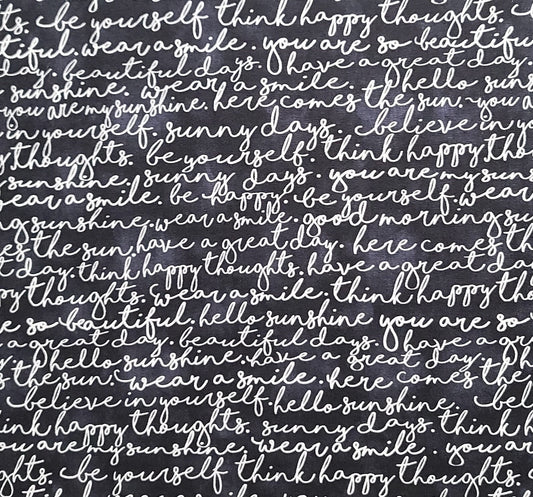 ts. be yourself think happy thoughts. be
tiful. wear a smile. you are so beautiful
day. beautiful days. have a great day.
sunshine. wear a smile. hello sunshin
you are my sunshine. here comes the sun. you a
in yourself. sunny days. believe in yo
thoughts. be yourself. think happy tho
sunshine. sunny days. you are my sun
ear a smile. be happy. be yourself. wear
ng sunshine. wear a smile. good morning su
es the sun. have a great day. here comes th
t day. think happy thoughts. have a great da
py thoughts. wear a smile. think happy tho
e so beautiful. hello sunshine you are so
a great day. beautiful days. have a gre
y hello sunshine. have a great day.
s the sun. wear a smile. here comes the
believe in yourself. hello sunshine. bel
ink happy thoughts. sunny days. think ha
ou are my sunshine. wear a smile. you are
ghts. be yourself think happy thoughts.
tiful. wear a smile. you are so beauti